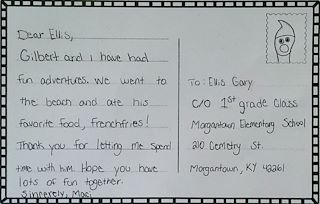 Dear Ellis,
Gilbert and I have had
fun adventures. We went to
the beach and ate his
favorite food, frenchfries!
Thank you for letting me spend
time with him. Hope you have
lots of fun together.
Sincerely, Maci
To: Ellis Gary
C/O 1st grade Class
Morgantown Elementary School
210 Cemetry St.
Morgantown, KY 42261